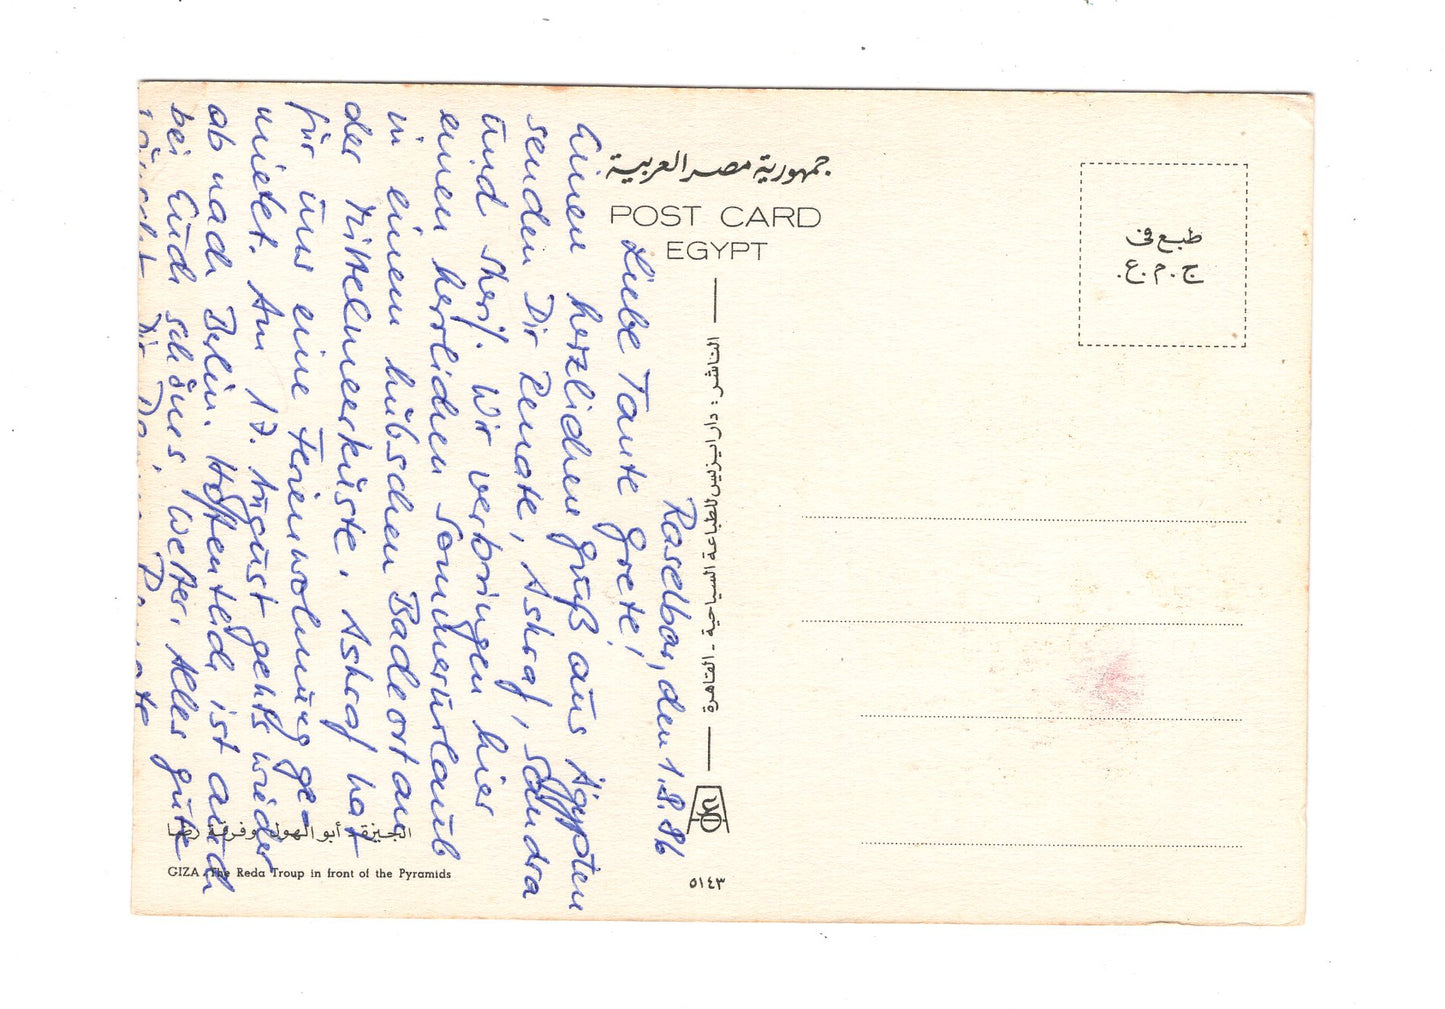 جمهورية مصر العربية
POST CARD
EGYPT
طبع فى
ج.م.ع.
الناشر : دار ايزيس للطباعة السياحية - القاهرة
Raselbar, den 1.8.86
Liebe Tante Grete!
Einen herzlichen Gruß aus Ägypten
senden Dir Renate, Ashraf, Sandra
und Sherif. Wir verbringen hier
einen herrlichen Sommerurlaub
in einem hübschen Badeort an
der Mittelmeerküste. Ashraf hat
für uns eine Ferienwohnung ge-
mietet. Am 17. August gehts wieder
ab nach Berlin. Hoffentlich ist auch
bei Euch schönes Wetter. Alles gute
wünscht Dir Deine Renate
الجيزة - أبو الهول وفرقة رضا
GIZA - The Reda Troup in front of the Pyramids
٥١٤٣